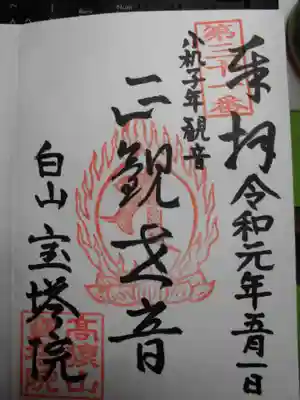 奉拝
令和元年五月一日
第三十一番
小机子年観音
正観世音
白山 宝塔院